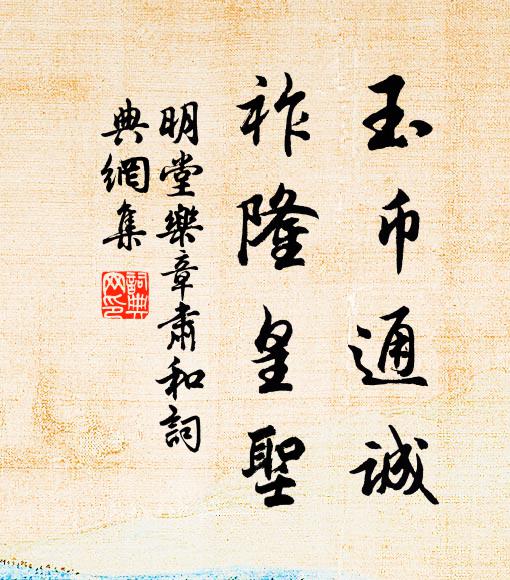 玉币通诚
祚隆皇聖
明堂樂章肅和詞
典網集
詞典
网印